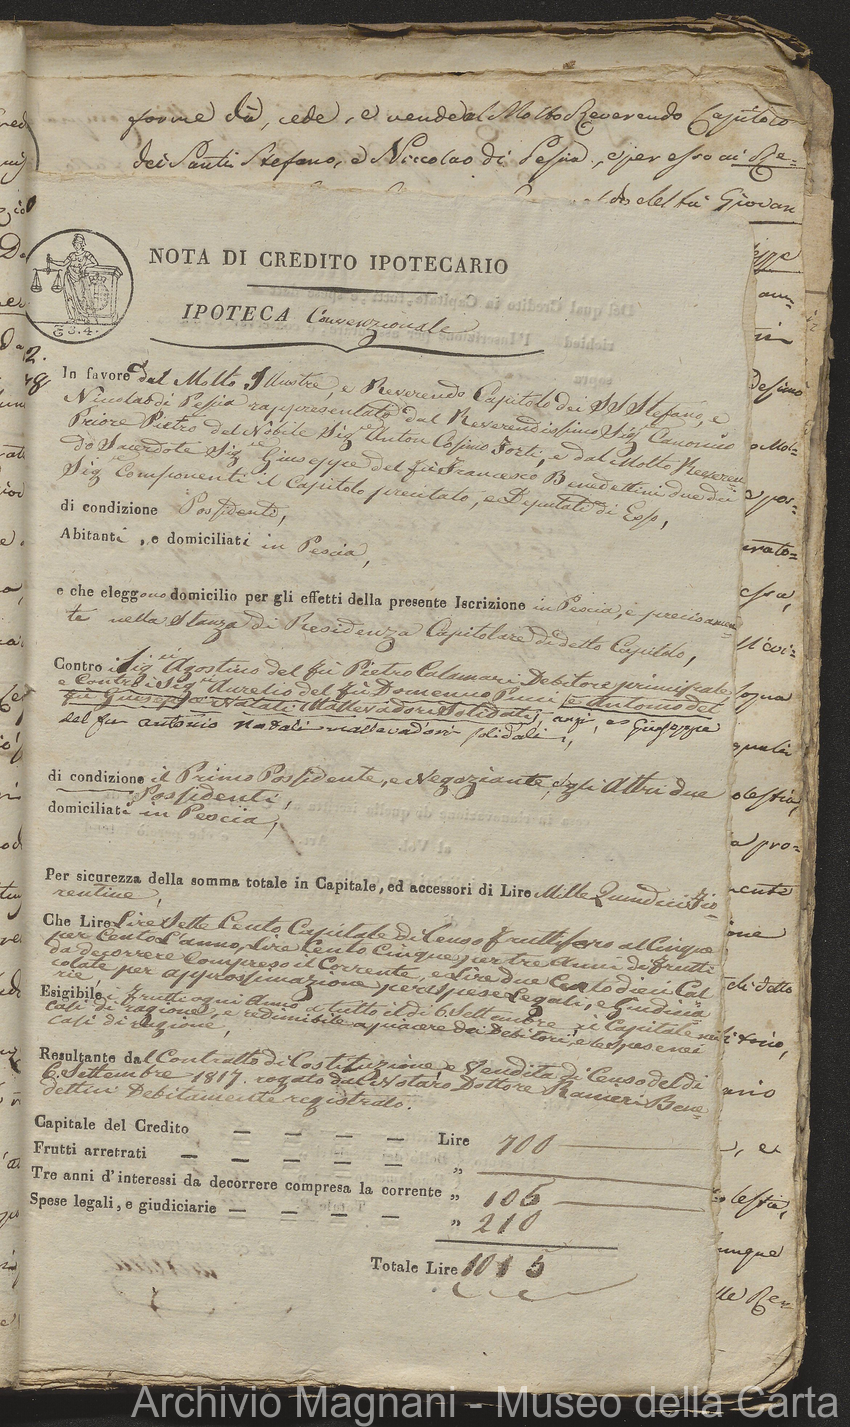 forme dà, cede, e vende al Molto Reverendo Capitolo
dei Santi Stefano, e Niccolao di Pescia, e per esso ai Re=
del fu Giovan
S. 4.
NOTA DI CREDITO IPOTECARIO
IPOTECA Convenzionale
In favore del Molto Illustre, e Reverendo Capitolo dei SS Stefano, e
Niccolao di Pescia rappresentato dal Reverendissimo Sig. Canonico
Priore Pietro del Nobile Sig. Anton Cosimo Forti, e dal Molto Reveren=
do Sacerdote Sig. Giuseppe del fù Francesco Benedettini due dei
Sigri Componenti il Capitolo prenotato, e Deputati di Esso,
di condizione Possidenti,
Abitanti, e domiciliati in Pescia,
e che eleggono domicilio per gli effetti della presente Iscrizione in Pescia, e precisamen=
te nella Stanza di Residenza Capitolare di detto Capitolo,
Contro i Sigri Agostino del fù Pietro Calamari Debitore principale
e Contro i Sigri Aurelio del fù Domenico Pucci, e Antonio del
fù Giuseppe Natali Mallevadori Solidati, anzi, e Giuseppe
del fu Antonio Natali mallevadori solidali,
di condizione il Primo Possidente, e Negoziante, e gli Altri due
Possidenti,
domiciliati in Pescia,
Per sicurezza della somma totale in Capitale, ed accessori di Lire Mille Quindici Fio=
rentine,
Che Lire Lire Sette Cento Capitale di Censo fruttifero al Cinque
per Cento l'anno, Lire Cento Cinque per tre Anni di frutti
da decorrere Compreso il Corrente, e Lire due Cento dieci Cal
colate per approssimazione per le spese Legali, e Giudicia
rie,
Esigibile i frutti ogni Anno a tutto il dì 6 Settembre, il Capitale nei
casi di ragione, e redimibile a piacere dei Debitori, e le spese nei
casi di ragione,
Resultante dal Contratto di Costituzione, e Vendita di Censo del dì
6. Settembre 1817. rogato dal Notaro Dottore Ranieri Bene=
dettini Debitamente registrato.
Capitale del Credito — — — — Lire 700
Frutti arretrati — — — — — „
Tre anni d'interessi da decorrere compresa la corrente „ 105
Spese legali, e giudiciarie — — — — „ 210
Totale Lire 1015
Archivio Magnani - Museo della Carta